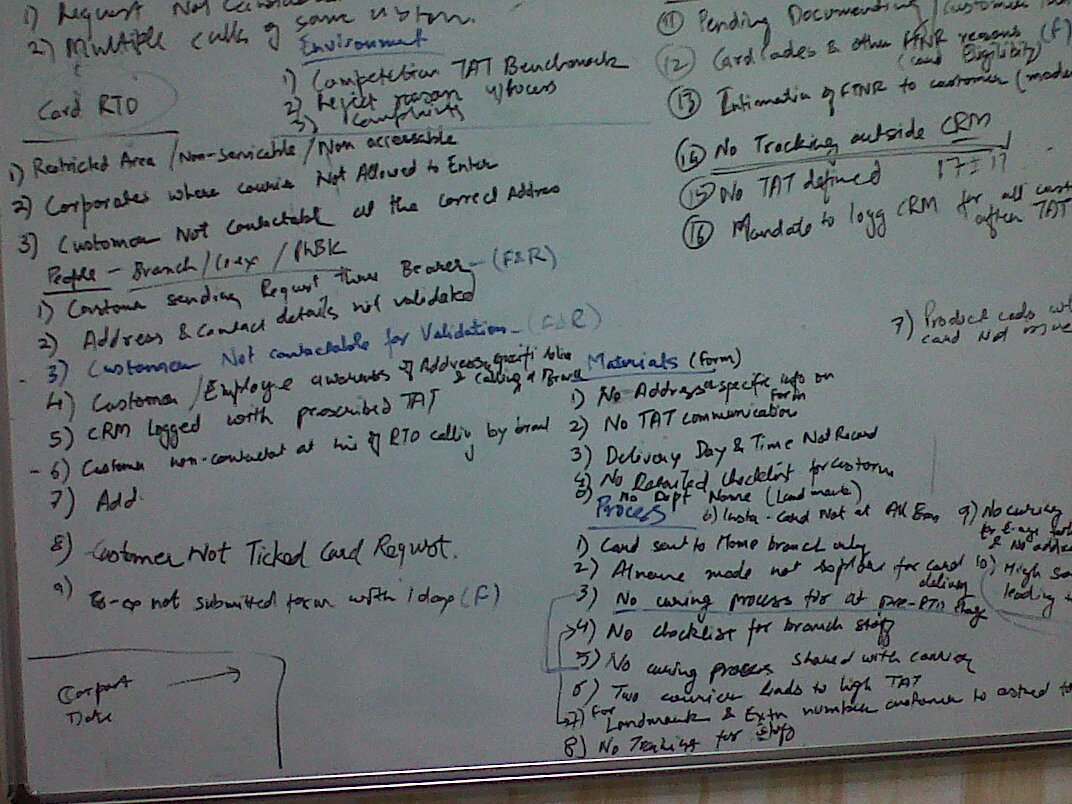 1) Request Not
2) Multiple calls of same
Environment
1) Competition TAT Benchmark
2) Reject reason w/focus
3) Complaints
Card RTO
1) Restricted Area / Non-servicable / Non accessable
2) Corporates where courier Not Allowed to Enter
3) Customer Not contactable at the correct Address
People - Branch / / PhBk
1) Customer sending Request thru Bearer - (F&R)
2) Address & Contact details not validated
3) Customer Not contactable for Validation - (F&R)
4) Customer / Employee awareness of Address specific
& Calling of Branch
5) CRM logged with prescribed TAT
6) Customer non-contactat at time of RTO calling by
7) Add.
8) Customer Not Ticked Card Request.
9) not submitted form with 1 day (F)
Carport
Date
11) Pending Documenting / Customer
12) Card codes & other FTNR reasons (F)
(card Eligibility)
13) Intimation of FTNR to customer (mode
14) No Tracking outside CRM
15) No TAT defined
16) Mandate to logg CRM for all
after TAT
7) Product codes
card not
Materials (Form)
1) No Address specific info on
Form
2) No TAT communication
3) Delivery Day & Time Not Record
4) No Detailed checklist for customer
5) No Dept Name (Landmark)
6) Insta-Card Not at All
Process
1) Card sent to Home branch only
2) mode not for card
delivery
3) No curing process for at pre-RTO stage
4) No checklist for branch staff
5) No curing process shared with courier
6) Two courier leads to high TAT
7) For Landmark & Extn number customer to
8) No Tracking for
9) No curing
& No
10) High
leading